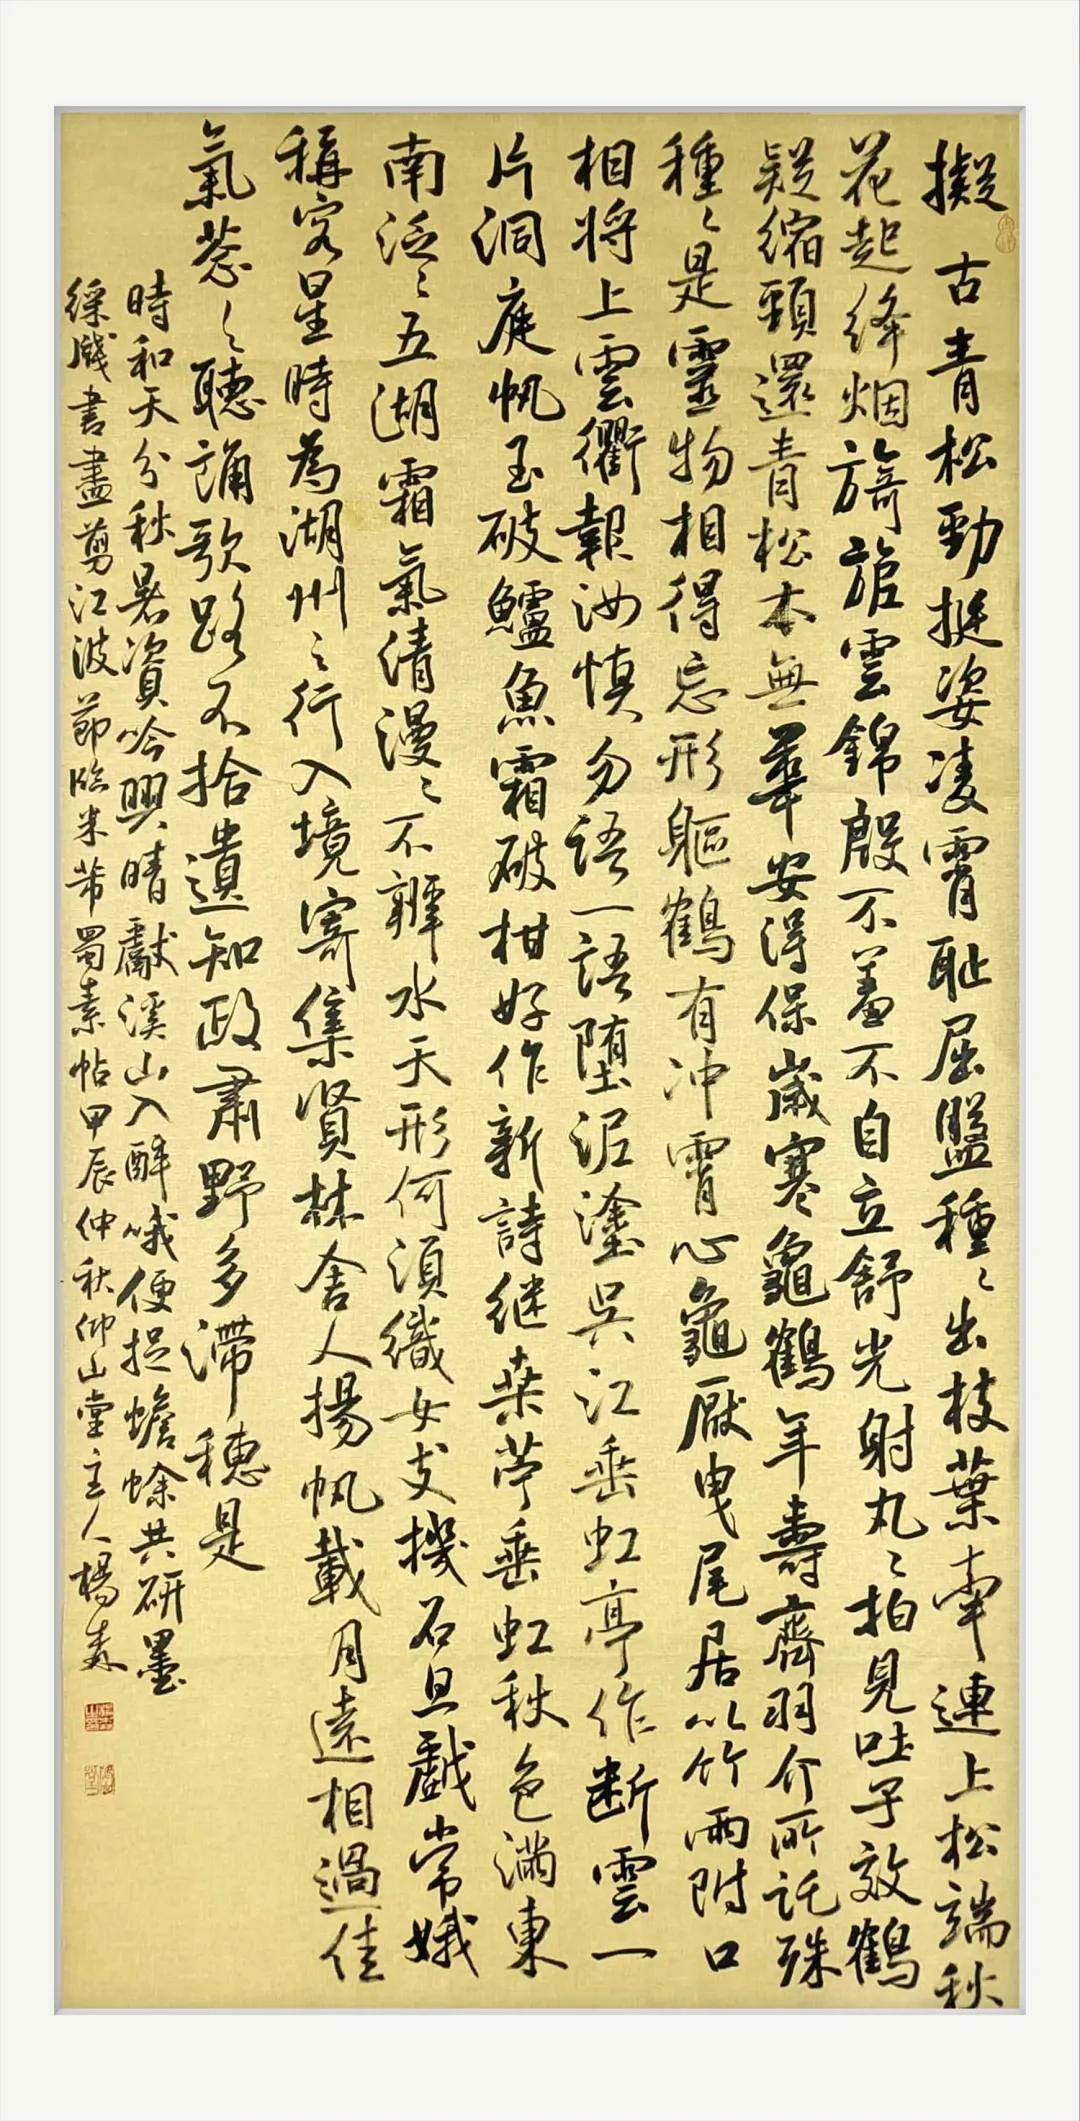 擬古青松勁挺姿凌霄恥屈盤種〻出枝葉牽連上松端秋
花起絳烟旖旎雲錦殷不羞不自立舒光射丸〻拍見吐子效鶴
疑縮頸還青松本無華安得保歲寒龜鶴年壽齊羽介所託殊
種〻是靈物相得忘形軀鶴有冲霄心龜厭曳尾居以竹兩附口
相將上雲衢報汝慎勿語一語堕泥塗吳江垂虹亭作断雲一
片洞庭帆玉破鱸魚霜破柑好作新詩継桒苧垂虹秋色滿東
南泛〻五湖霜氣清漫〻不辨水天形何須織女支機石且戲常娥
稱客星時為湖州之行入境寄集賢林舍人揚帆載月遠相過佳
氣葱〻聽誦歌路不拾遺知政肅野多滯穗是
時和天分秋暑資吟興晴獻溪山入醉哦便捉蟾蜍共研墨
綵牋書盡剪江波節臨米芾蜀素帖甲辰仲秋仰山堂主人楊